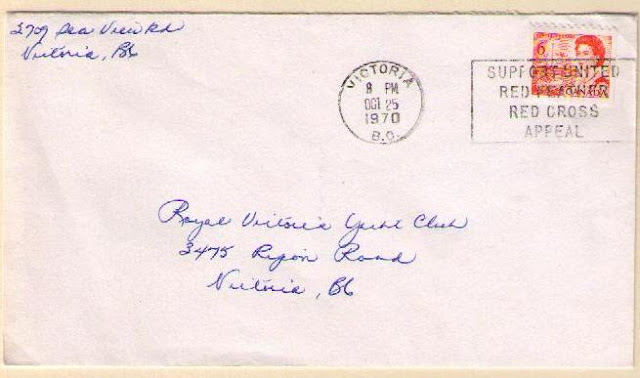 2709 Sea View Rd
Victoria, BC
VICTORIA
8 PM
OCT 25
1970
B.C.
6
SUPPORT UNITED
RED FEATHER
RED CROSS
APPEAL
Royal Victoria Yacht Club
3475 Ripon Road
Victoria, BC